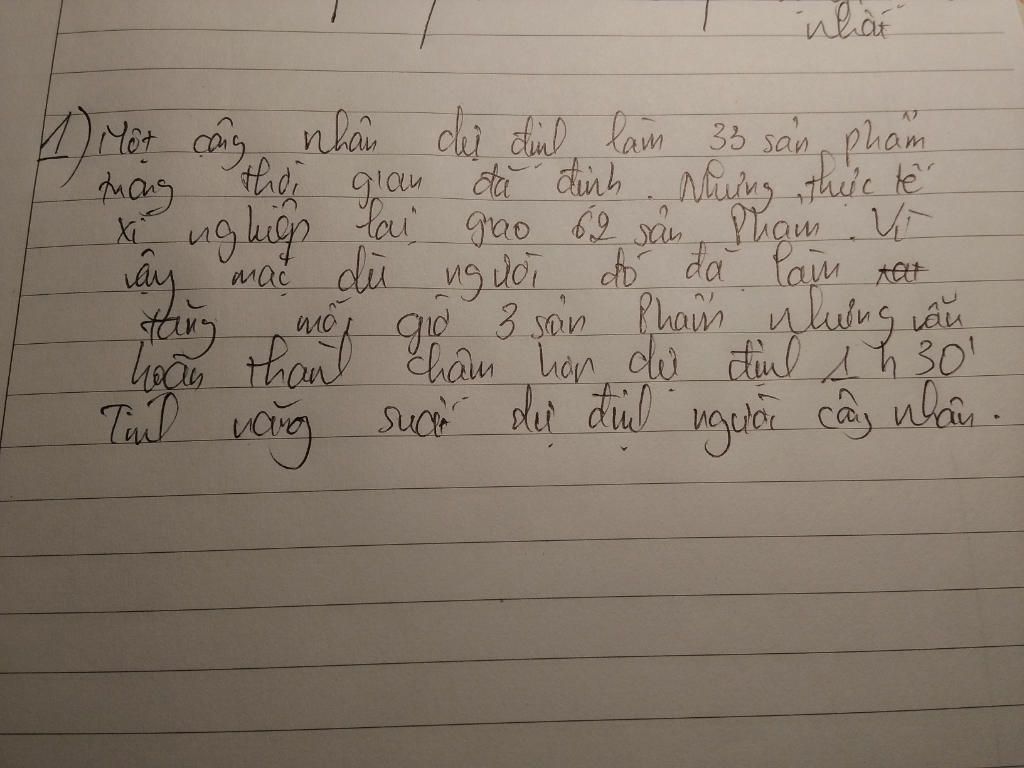 nhất
1) Một công nhân dự định làm 33 sản phẩm
trong thời gian đã định. Nhưng thực tế
xí nghiệp lại giao 62 sản phẩm. Vì
vậy mặc dù người đó đã làm
tăng mỗi giờ 3 sản phẩm nhưng vẫn
hoàn thành chậm hơn dự định 1h30'
Tính năng suất dự định người công nhân.